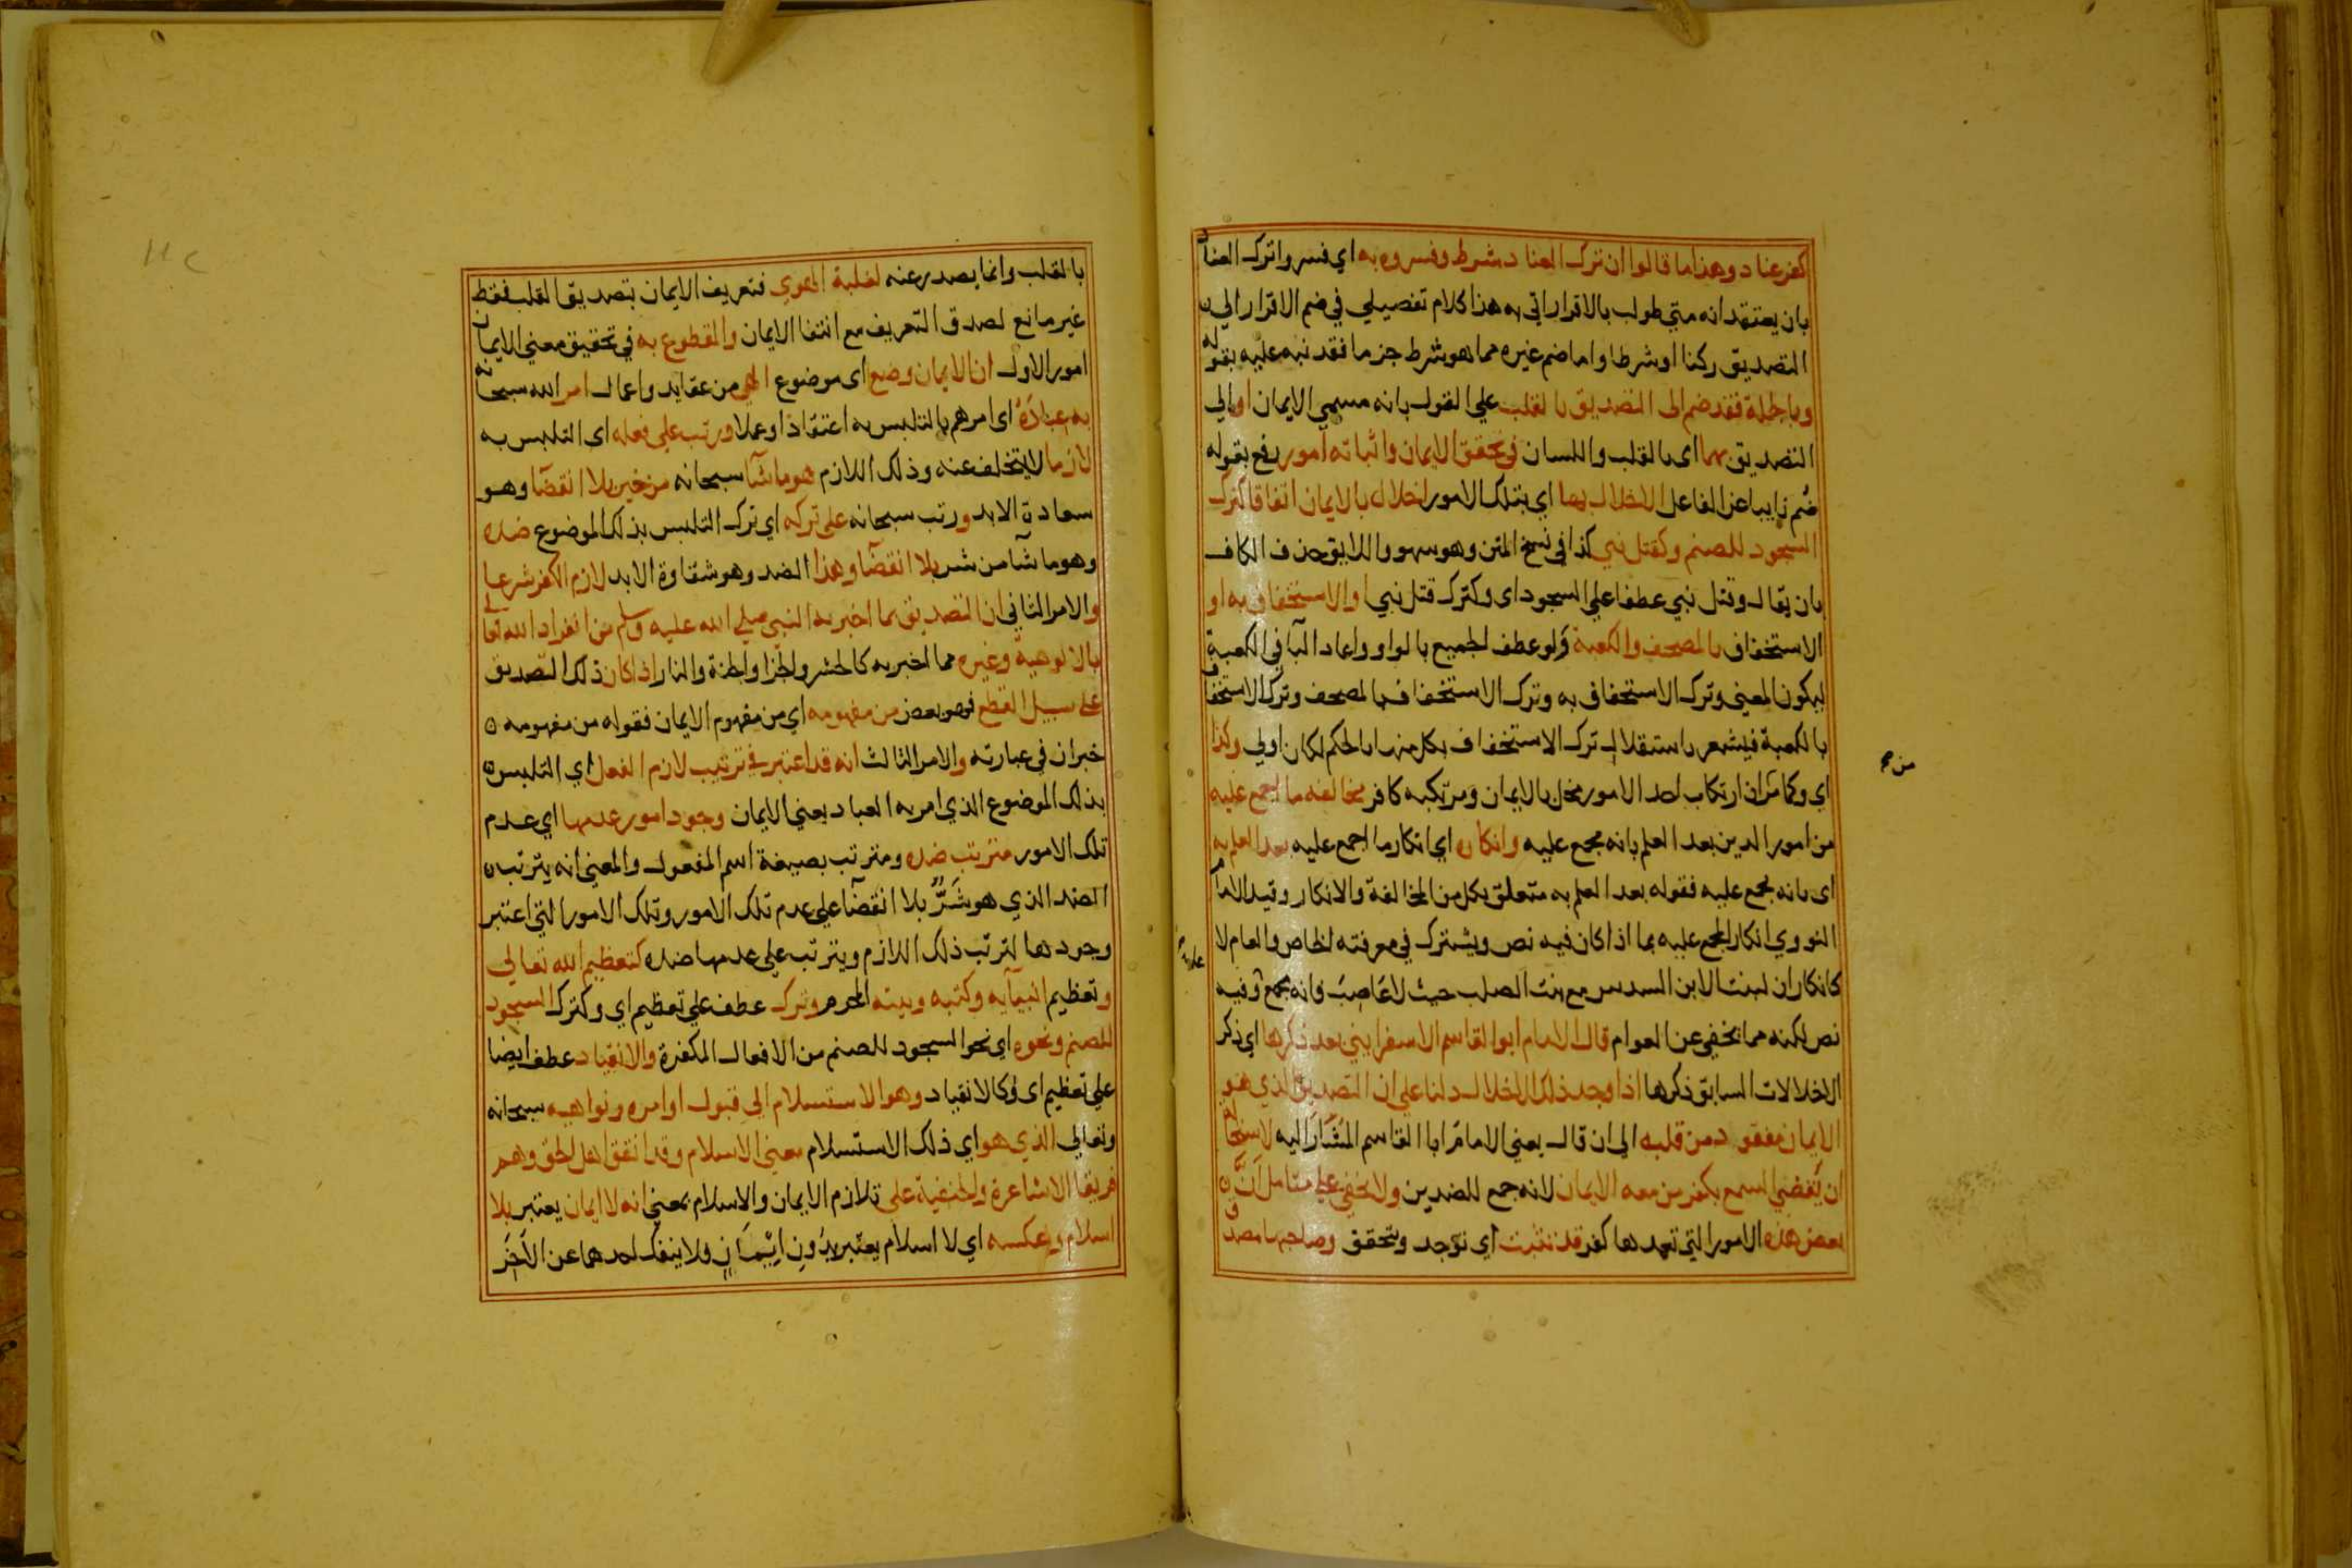 كفر عناد وهذا ما قالوا ان ترك العناد شرط وفسروه به اي فسروا ترك العناد
بان يعتقد انه متي طولب بالاقرار اتي به هذا كلام تفصيلي في ضم الاقرار الي
التصديق ركنا او شرطا واما ضم غيره مما هو شرط جزما فقد نبه عليه بقوله
وبالجملة فقد ضم الى التصديق بالقلب علي القول بانه مسمي الايمان او الي
التصديق بهما اى بالقلب واللسان في تحقق الايمان واثباته امور رفع بقوله
ضُم نايبا عن الفاعل الاخلال بها اي بتلك الامور اخلال بالايمان اتفاقا كترك
السجود للصنم وكقتل نبي كذا في نسخ المتن وهو سهو واللايق حذف الكاف
بان يقال وقتل نبي عطفا علي السجود اى وكترك قتل نبي او الاستخفاف به او
الاستخفاف بالمصحف والكعبة ولو عطف الجميع بالواو واعاد البآ في الكعبة
ليكون المعني وترك الاستخفاف به وترك الاستخفاف بالمصحف وترك الاستخفاف
بالكعبة فيشعر باستقلال ترك الاستخفاف بكل منها بالحكم لكان اولي وكذا
اي وكما مر ان ارتكاب احد الامور مخل بالايمان ومرتكبه كافر مخالفة ما اجمع عليه
من امور الدين بعد العلم بانه مجمع عليه وانكاره اي انكار ما اجمع عليه بعد العلم به
اى بانه مجمع عليه فقوله بعد العلم به متعلق بكل من المخالفة والانكار وقيد الامام
النووي انكار المجمع عليه بما اذا كان فيه نص ويشترك في معرفته الخاص والعام لا
كانكار ان لبنت الابن السدس مع بنت الصلب حيث لا عاصب فانه مجمع وفيه
نص لكنه مما يخفي عن العوام قال الامام ابو القاسم الاسفرايني بعد ذكرها اي ذكر
الاخلالات السابق ذكرها اذا وجد ذلك الاخلال دلنا علي ان التصديق الذي هو
الايمان مفقود من قلبه الي ان قال يعني الامام ابا القاسم المُشَار اليه لاستحالة
ان يقضي السمع بكفر من معه الايمان لانه جمع للضدين ولا يخفي علي متامل انّ
بعض هذه الامور التي تعمدها كفر قد تثبت اي توجد وتتحقق وصاحبها مصدق
بالقلب وانما يصدر عنه لغلبة الهوي فتعريف الايمان بتصديق القلب فقط
غير مانع لصدق التعريف مع انتفا الايمان والمقطوع به في تحقيق معني الايمان
امور الاول ان الايمان وضع اى موضوع الهي من عقايد واعمال امر الله سبحانه
به عباده اى امرهم بالتلبس به اعتقادًا وعملا ورتب علي فعله اى التلبس به
لازما لا يتخلف عنه وذلك اللازم هو ما شآ سبحانه من خير بلا انقضآ وهو
سعادة الابد ورتب سبحانه علي تركه اي ترك التلبس بذلك الموضوع ضده
وهو ما شآ من شر بلا انقضآ وهذا الضد وهو شقاوة الابد لازم الكفر شرعا
والامر الثاني ان التصديق بما اخبر به النبي صلي الله عليه وسلم من انفراد الله تعالي
بالالوهية وغيره مما اخبر به كالحشر والجزا والجنة والنار اذا كان ذلك التصديق
علي سبيل القطع فهو بعض من مفهومه اي من مفهوم الايمان فقوله من مفهومه
خبر ان في عبارته والامر الثالث انه قد اعتبر في ترتيب لازم الفعل اي التلبس
بذلك الموضوع الذي امر به العباد يعني الايمان وجود امور عدمها اي عدم
تلك الامور مترتب ضده ومترتب بصيغة اسم المفعول والمعني انه يترتب
الضد الذي هو شَرٌّ بلا انقضآ علي عدم تلك الامور وتلك الامور التي اعتبر
وجودها لترتب ذلك اللازم ويترتب علي عدمها ضده كتعظيم الله تعالي
وتعظيم انبيآيه وكتبه وبيته المحرم وترك عطف علي تعظيم اي وكترك السجود
للصنم ونحوه اي نحو السجود للصنم من الافعال المكفرة والانقياد عطف ايضا
علي تعظيم اى وكالانقياد وهو الاستسلام الي قبول اوامره ونواهيه سبحانه
وتعالي الذي هو اي ذلك الاستسلام معني الاسلام وقد اتفق اهل الحق وهم
فريقا الاشاعرة والحنفية علي تلازم الايمان والاسلام بمعني انه لا ايمان يعتبر بلا
اسلام وعكسه اي لا اسلام يعتبر بدُونِ اِيْمَانٍ ولا ينفك احدهما عن الآخَر